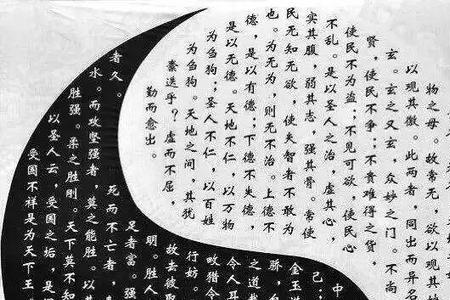 物之母。故常无，欲以观其
以观其徼。此两者，同出而异名
玄。玄之又玄，众妙之门。不尚
贤，使民不争；不贵难得之货，
使民不为盗；不见可欲，使民心
不乱。是以圣人之治，虚其心，
实其腹，弱其志，强其骨。常使
民无知无欲，使夫智者不敢为
也。为无为，则无不治。上德不
德，是以有德；下德不失德，
是以无德。天地不仁，以万物
为刍狗；圣人不仁，以百姓
为刍狗。天地之间，其犹
乎？虚而不屈，
而愈出。
中
己；
金玉
骄，
之道
令人耳
猎令
行妨
故去彼取
明。胜人
足者富。强
者久。死而不亡者，
水。而攻坚强者，莫之能胜。以其
胜强。柔之胜刚。天下莫不知
是以圣人云，受国之垢，是
受国不祥是为天下王